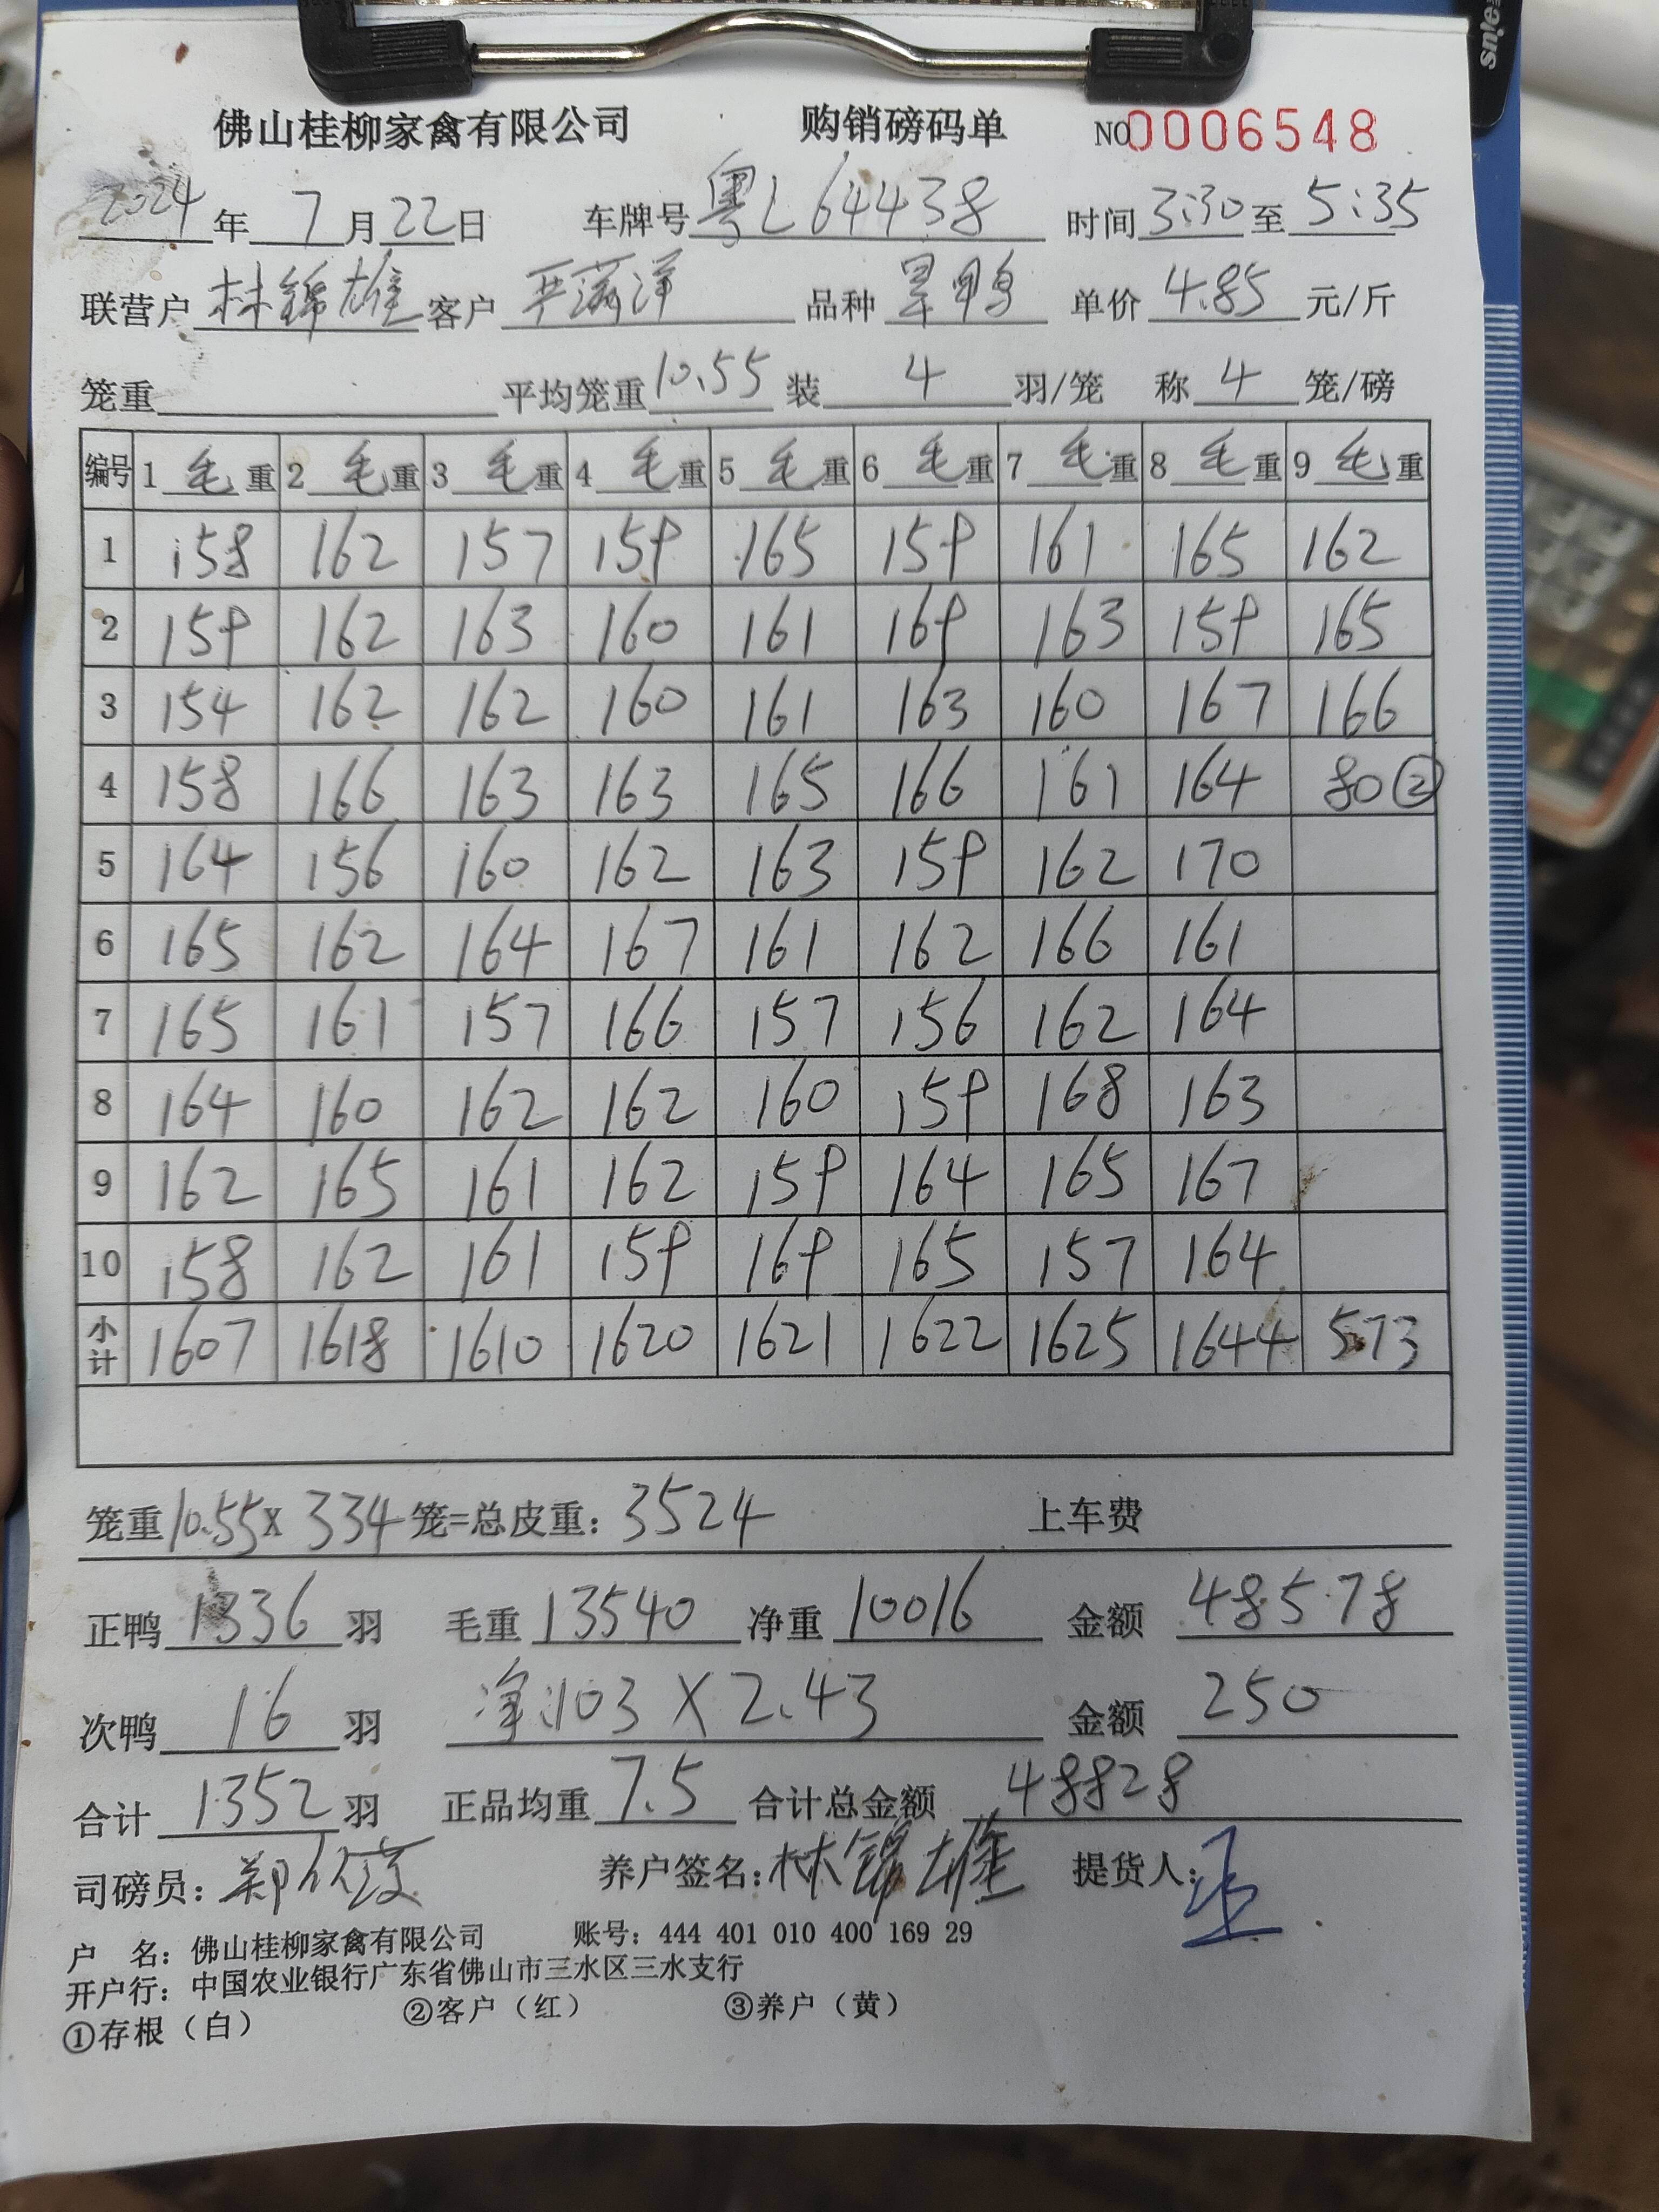 佛山桂柳家禽有限公司 购销磅码单 NO0006548
2024年7月22日 车牌号粤L64438 时间3:30至5:35
联营户林锦雄 客户 严满洋 品种 旱鸭 单价4.85元/斤
笼重 平均笼重10.55 装4羽/笼 称4笼/磅
编号 1毛重 2毛重 3毛重 4毛重 5毛重 6毛重 7毛重 8毛重 9毛重
1 158 162 157 159 165 159 161 165 162
2 159 162 163 160 161 169 163 159 165
3 154 162 162 160 161 163 160 167 166
4 158 166 163 163 165 166 161 164 80②
5 164 156 160 162 163 159 162 170
6 165 162 164 167 161 162 166 161
7 165 161 157 166 157 156 162 164
8 164 160 162 162 160 159 168 163
9 162 165 161 162 159 164 165 167
10 158 162 161 159 169 165 157 164
小计 1607 1618 1610 1620 1621 1622 1625 1644 573
笼重10.55X334笼=总皮重：3524 上车费
正鸭1336羽 毛重13540 净重10016 金额48578
次鸭16羽 净:103X2.43 金额250
合计1352羽 正品均重7.5 合计总金额48828
司磅员： 养户签名：林锦雄 提货人：
户 名：佛山桂柳家禽有限公司 账号：444 401 010 400 169 29
开户行：中国农业银行广东省佛山市三水区三水支行
①存根（白） ②客户（红） ③养户（黄）